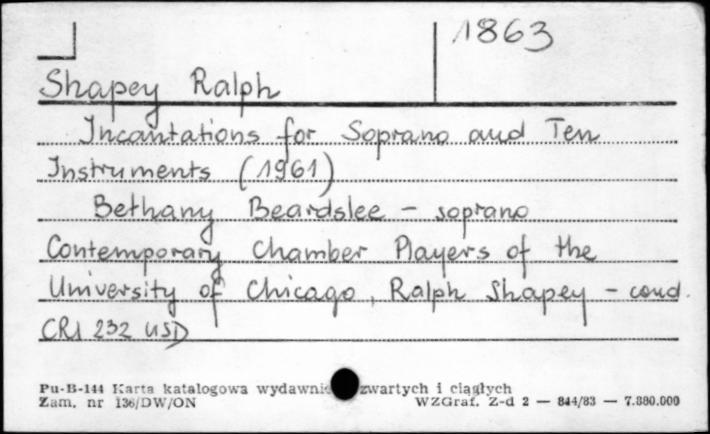 1863
Shapey Ralph
Incantations for Soprano and Ten
Instruments (1961)
Bethany Beardslee - soprano
Contemporary Chamber Players of the
University of Chicago, Ralph Shapey - cond.
CRI 232 USD
Pu-B-144 Karta katalogowa zwartych i ciągłych
Zam. nr 136/DW/ON WZGraf. Z-d 2 — 844/83 — 7.880.000